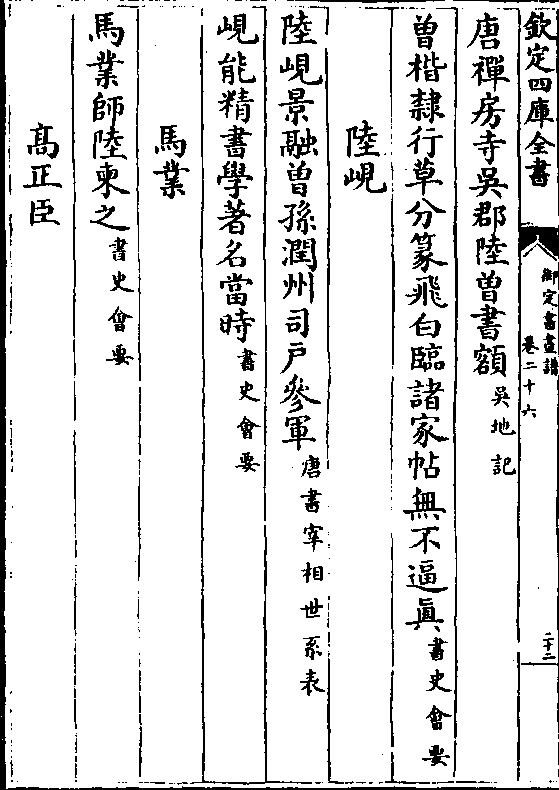 欽定四庫全書
御定書畫譜
卷二十六
二十二
唐禪房寺吳郡陸曾書額吳地記
曾楷隸行草分篆飛白臨諸家帖無不逼眞書史會要
陸峴
陸峴景融曾孫潤州司戸參軍唐書宰相世系表
峴能精書學著名當時書史會要
馬業
馬業師陸柬之書史會要
髙正臣